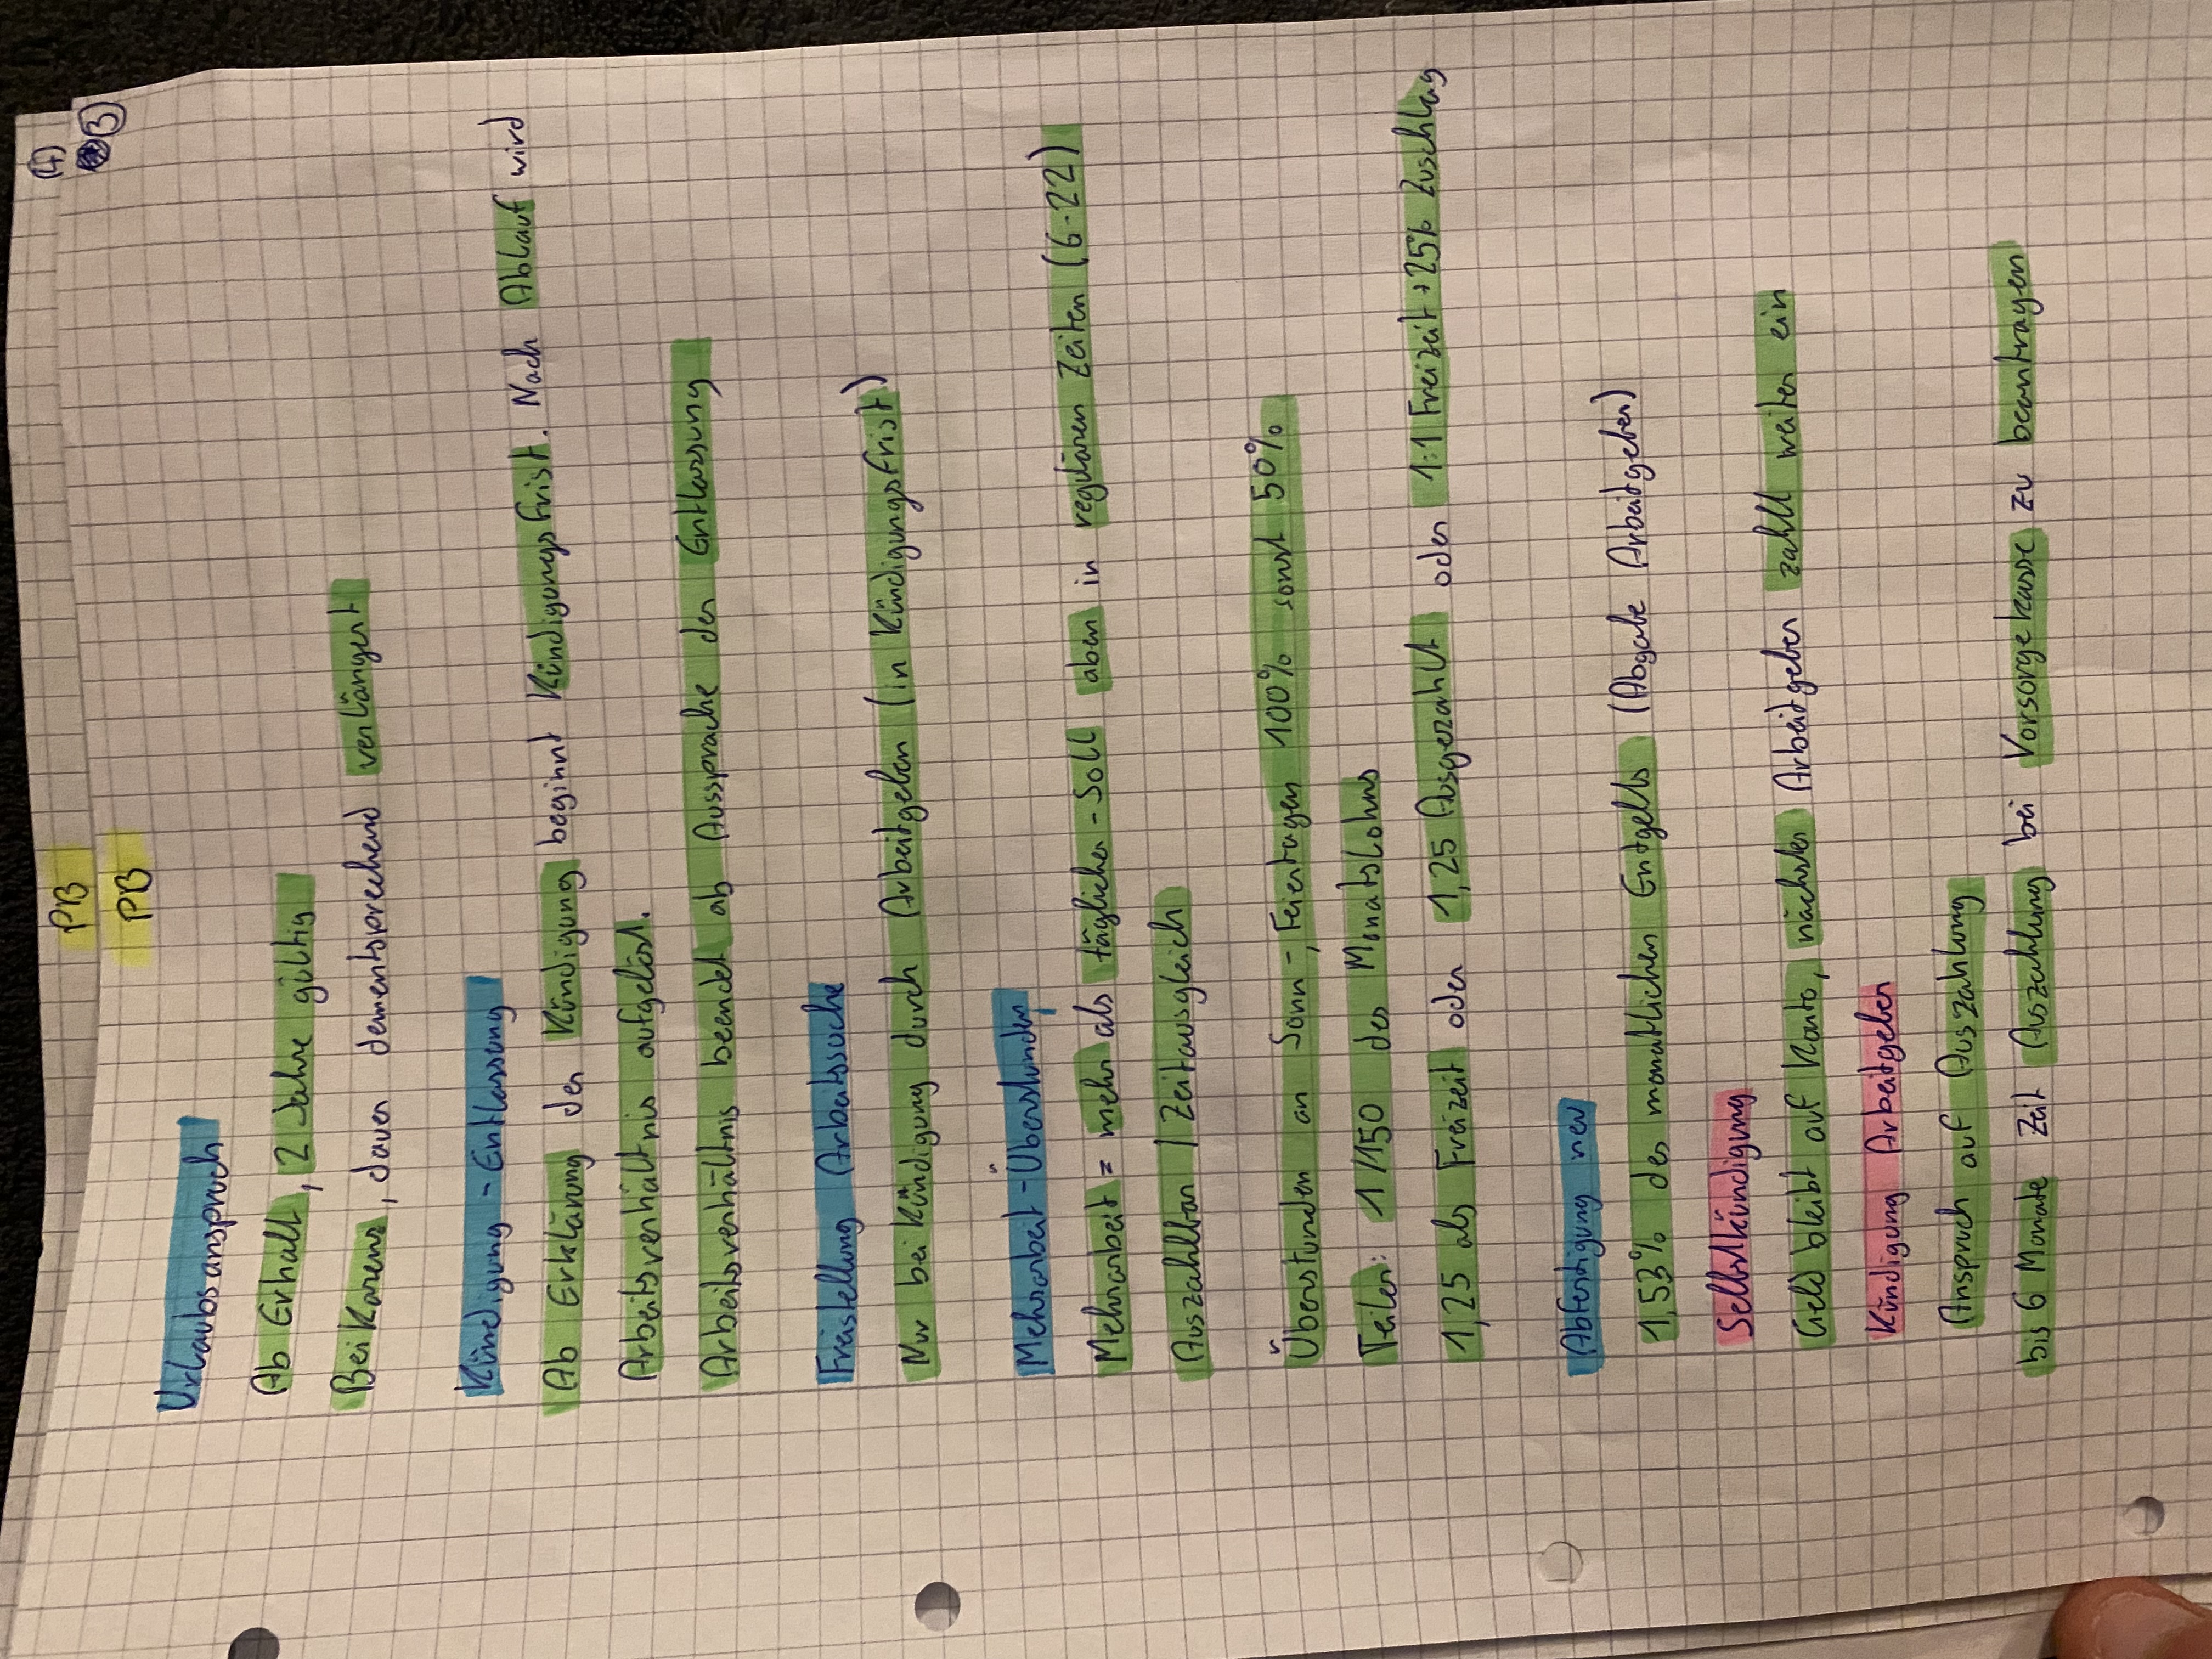 PB
(4)
PB
3
Urlaubsanspruch
Ab Erhalt, 2 Jahre gültig
Bei Karenz, dauer dementsprechend verlängert
Kündigung - Entlassung
Ab Erklärung der Kündigung beginnt Kündigungsfrist. Nach Ablauf wird
Arbeitsverhältnis aufgelöst.
Arbeitsverhältnis beendet ab Aussprache der Entlassung
Freistellung Arbeitssuche
Nur bei Kündigung durch Arbeitgeber (in Kündigungsfrist)
Mehrarbeit - Überstunden
Mehrarbeit = mehr als täglicher - Soll aber in regulären Zeiten (6-22)
Auszahlbar / Zeitausgleich
Überstunden an Sonn-, Feiertagen 100% sonst 50%
Teiler: 1/150 des Monatslohns
1,25 als Freizeit oder 1,25 Ausgezahlt oder 1:1 Freizeit + 25% Zuschlag
Abfertigung neu
1,53% des monatlichen Entgelts (Abgabe Arbeitgeber)
Selbstkündigung
Geld bleibt auf Konto, nächster Arbeitgeber zahlt weiter ein
Kündigung Arbeitgeber
Anspruch auf Auszahlung
bis 6 Monate Zeit Auszahlung bei Vorsorgekasse zu beantragen